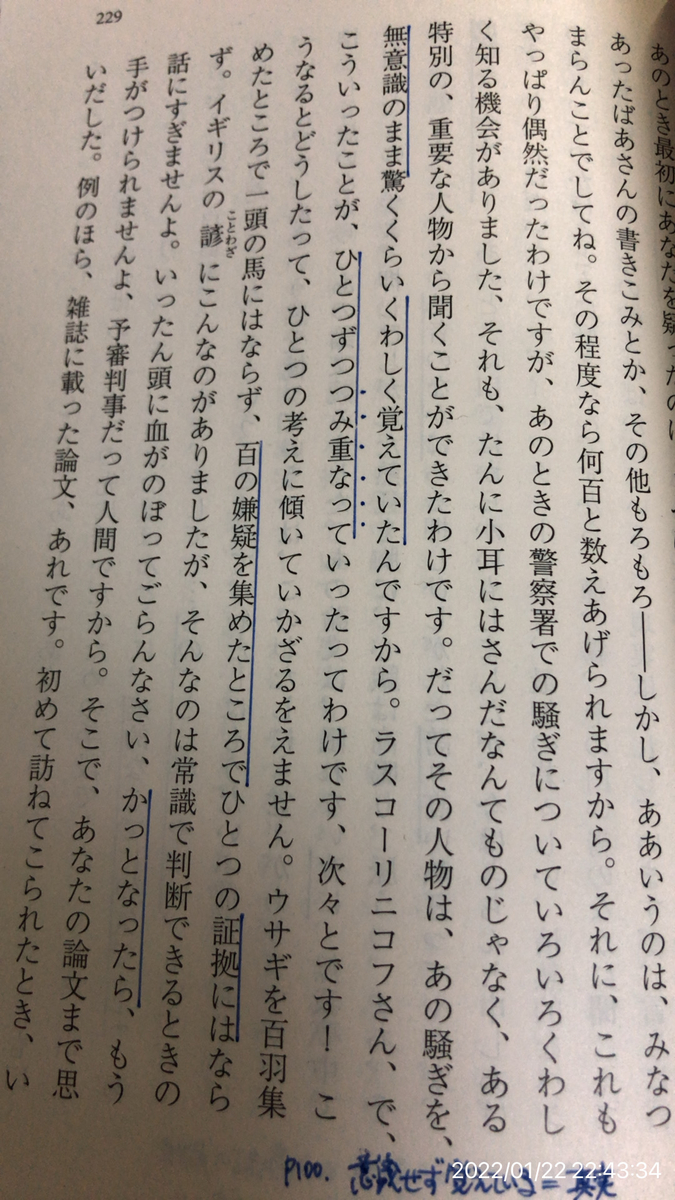 229
あのとき最初にあなたを疑ったのは
あったばあさんの書きこみとか、その他もろもろ――しかし、ああいうのは、みなつ
まらんことでしてね。その程度なら何百と数えあげられますから。それに、これも
やっぱり偶然だったわけですが、あのときの警察署での騒ぎについていろいろくわし
く知る機会がありました、それも、たんに小耳にはさんだなんてものじゃなく、ある
特別の、重要な人物から聞くことができたわけです。だってその人物は、あの騒ぎを、
無意識のまま驚くくらいくわしく覚えていたんですから。ラスコーリニコフさん、で、
こういったことが、ひとつずつつみ重なっていったってわけです、次々とです！　こ
うなるとどうしたって、ひとつの考えに傾いていかざるをえません。ウサギを百羽集
めたところで一頭の馬にはならず、百の嫌疑を集めたところでひとつの証拠にはなら
ず。イギリスの諺ことわざにこんなのがありましたが、そんなのは常識で判断できるときの
話にすぎませんよ。いったん頭に血がのぼってごらんなさい、かっとなったら、もう
手がつけられませんよ、予審判事だって人間ですから。そこで、あなたの論文まで思
いだした。例のほら、雑誌に載った論文、あれです。初めて訪ねてこられたとき、い
P100. 意識せず覚えている=真実
2022/01/22 22:43:34